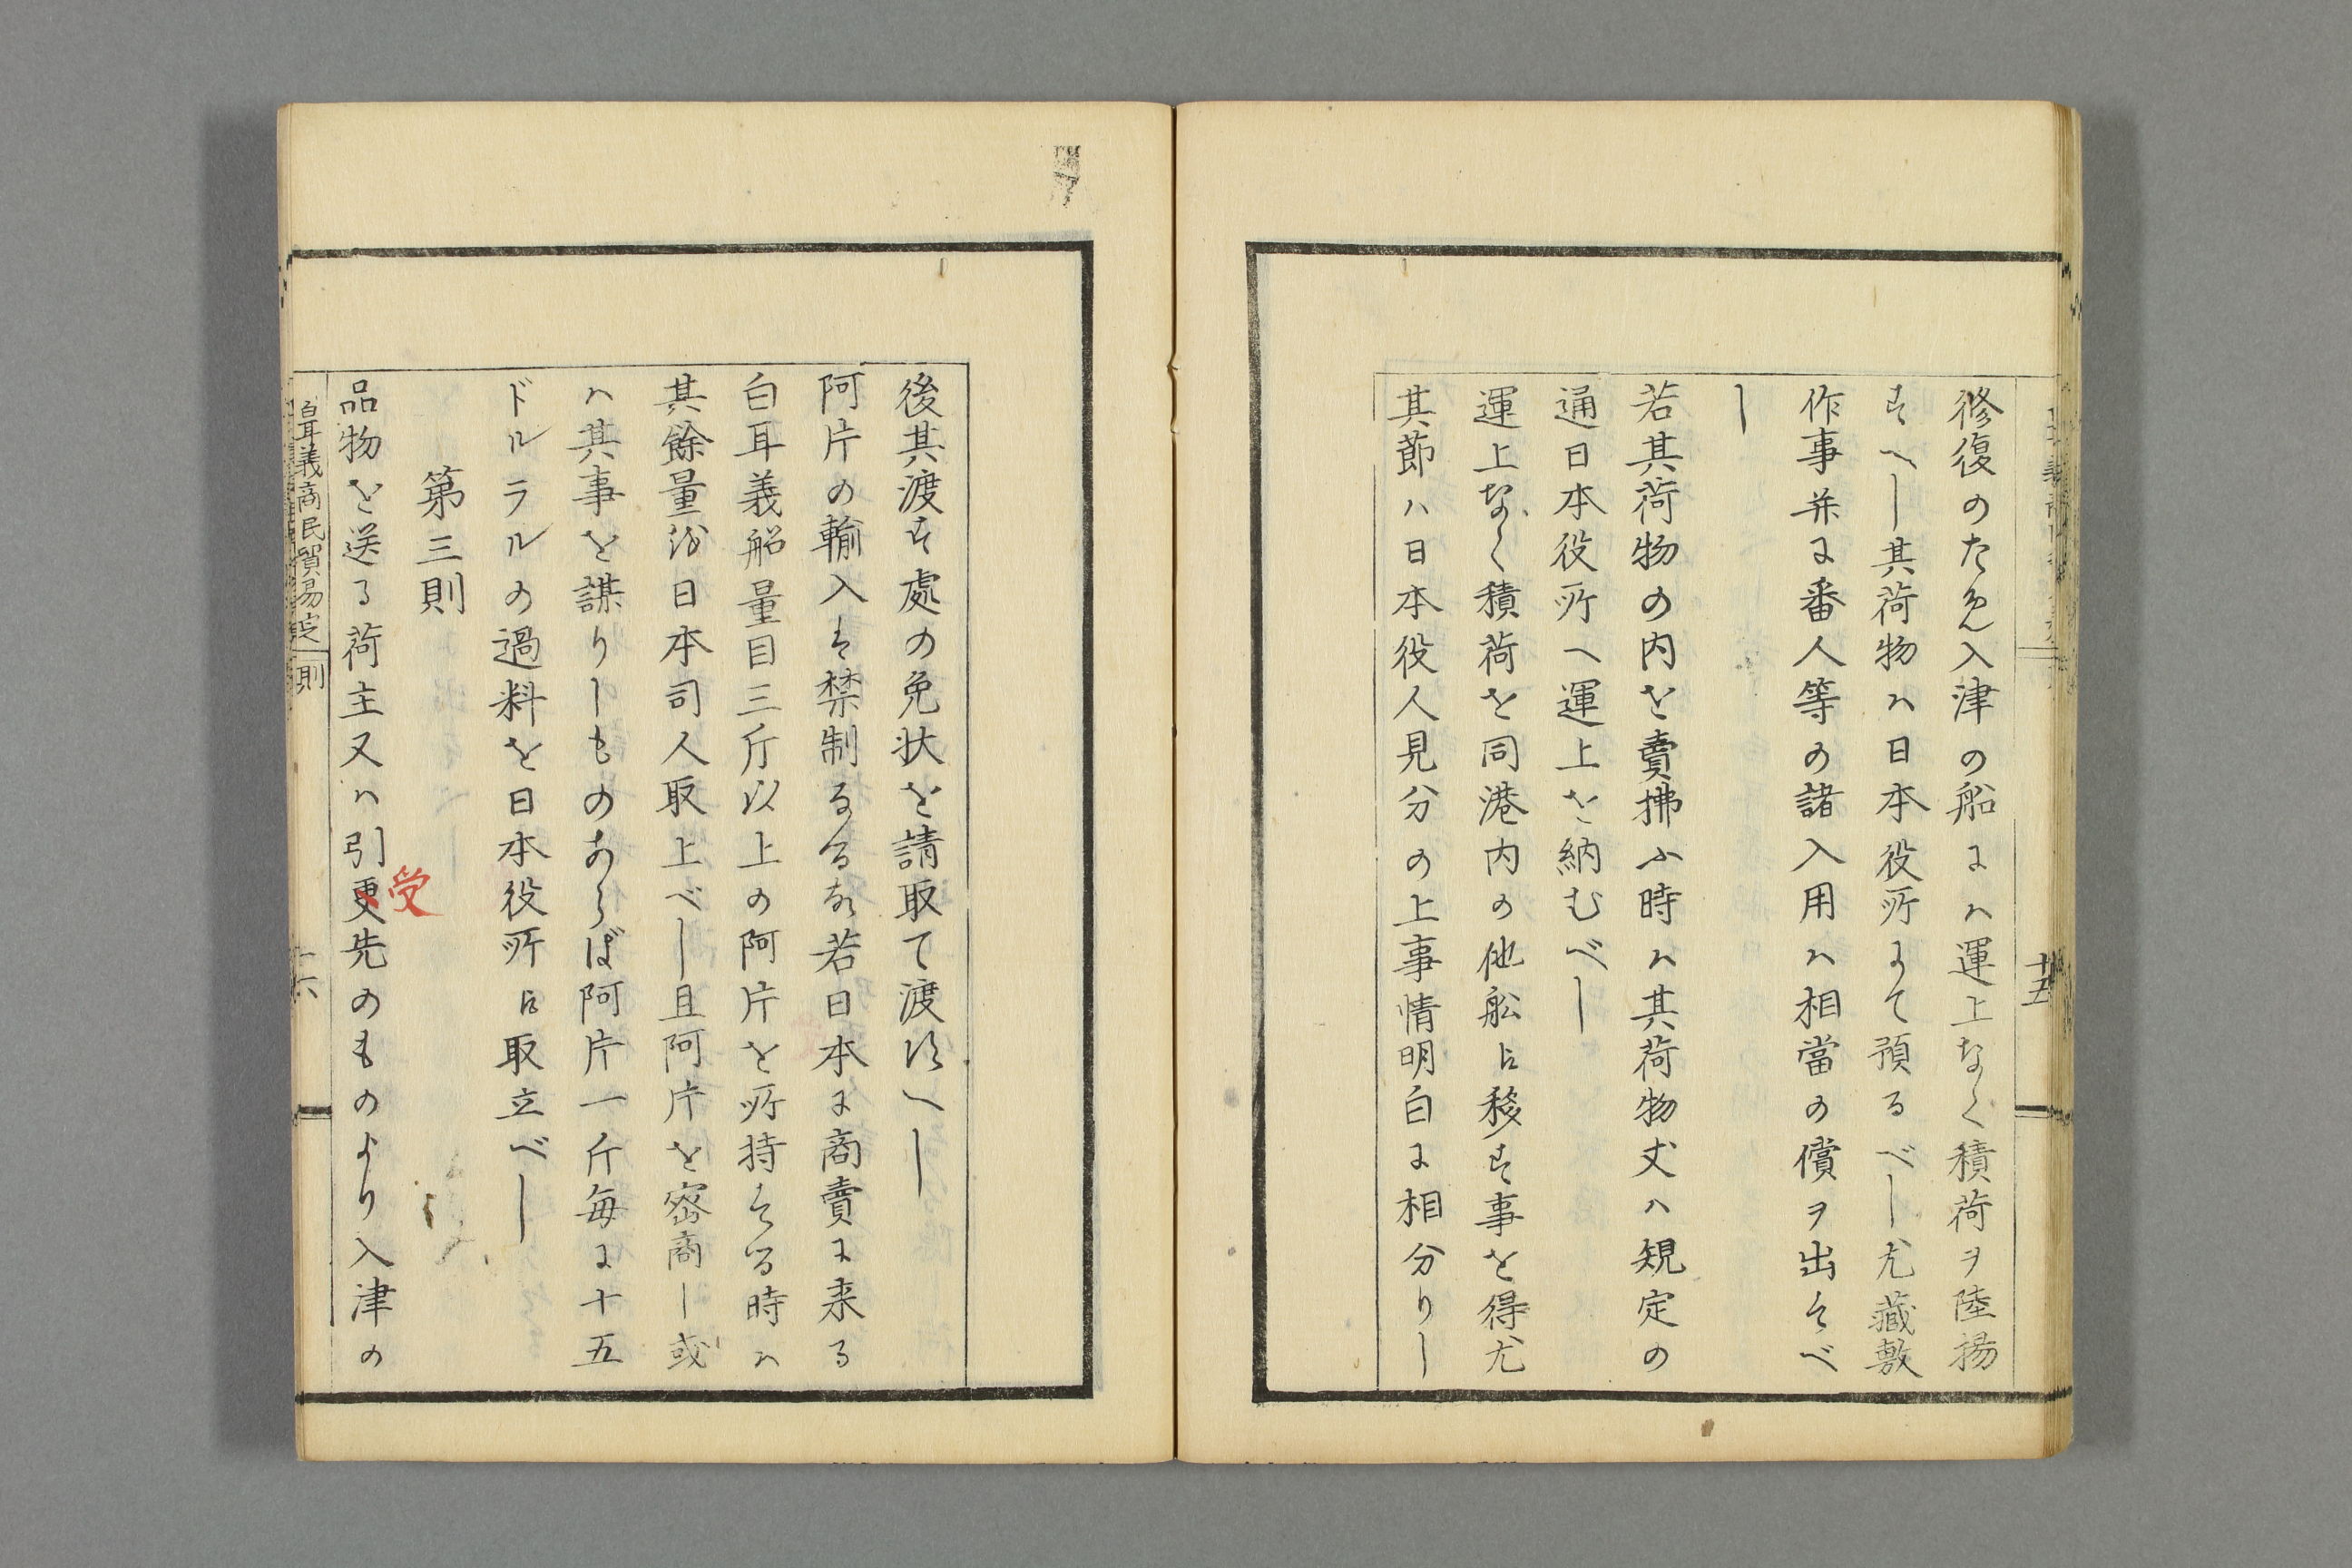 修復のため入津の船には運上なく積荷ヲ陸揚
すへし其荷物ハ日本役所にて預るべし尤蔵敷
作事并に番人等の諸入用ハ相當の償ヲ出すべ
し
若其荷物の内を賣拂ふ時ハ其荷物丈ハ規定の
通日本役所へ運上を納むべし
運上なく積荷を同港内の他舩に移す事を得尤
其節ハ日本役人見分の上事情明白に相分りし
十五
後其渡す處の免状を請取て渡すへし
阿片の輸入は禁制なるゆゑ若日本に商賣に来る
白耳義船量目三斤以上の阿片を所持する時ハ
其餘量は日本司人取上べし且阿片を密商し或
ハ其事を謀りしものあらば阿片一斤毎に十五
ドルラルの過料を日本役所に取立べし
第三則
品物を送る荷主又ハ引更先のものより入津の
受
白耳義商民貿易定則
十六